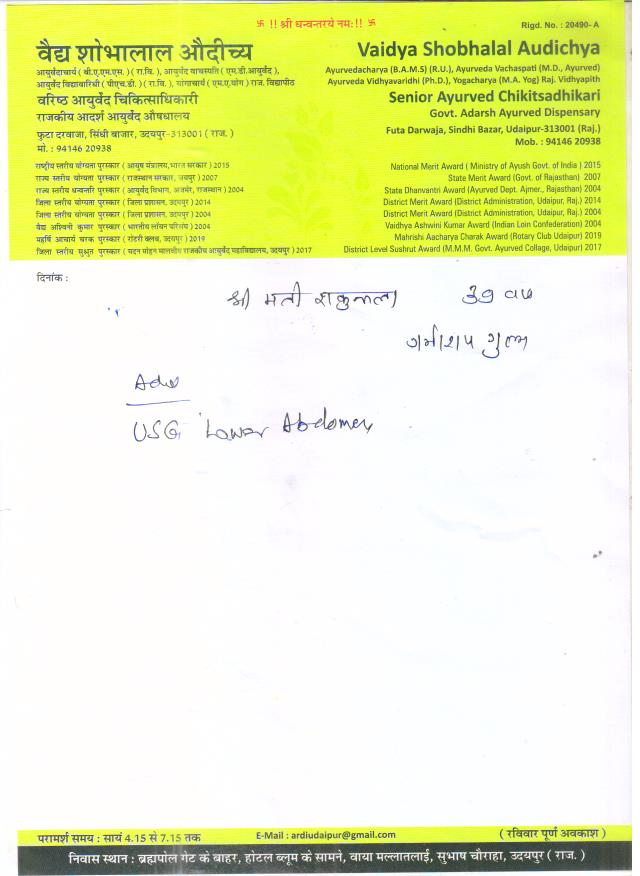 卐 !! श्री धन्वन्तरये नमः!! 卐
Rigd. No. : 20490- A
वैद्य शोभालाल औदीच्य
Vaidya Shobhalal Audichya
आयुर्वेदाचार्य ( बी.ए.एम.एस. ) ( रा.वि. ), आयुर्वेद वाचस्पति ( एम.डी.आयुर्वेद ),
आयुर्वेद विद्यावारिधी ( पीएच.डी. ) ( रा. वि. ), योगाचार्य ( एम.ए.योग ) राज. विद्यापीठ
Ayurvedacharya (B.A.M.S) (R.U.), Ayurveda Vachaspati (M.D., Ayurved)
Ayurveda Vidhyavaridhi (Ph.D.), Yogacharya (M.A. Yog) Raj. Vidhyapith
वरिष्ठ आयुर्वेद चिकित्साधिकारी
Senior Ayurved Chikitsadhikari
राजकीय आदर्श आयुर्वेद औषधालय
Govt. Adarsh Ayurved Dispensary
फुटा दरवाजा, सिंधी बाजार, उदयपुर-313001 ( राज. )
Futa Darwaja, Sindhi Bazar, Udaipur-313001 (Raj.)
मो. : 94146 20938
Mob. : 94146 20938
राष्ट्रीय स्तरीय योग्यता पुरस्कार ( आयुष मंत्रालय,भारत सरकार ) 2015
National Merit Award ( Ministry of Ayush Govt. of India ) 2015
राज्य स्तरीय योग्यता पुरस्कार ( राजस्थान सरकार, जयपुर ) 2007
State Merit Award (Govt. of Rajasthan) 2007
राज्य स्तरीय धन्वन्तरि पुरस्कार ( आयुर्वेद विभाग, अजमेर, राजस्थान ) 2004
State Dhanvantri Award (Ayurved Dept. Ajmer., Rajasthan) 2004
जिला स्तरीय योग्यता पुरस्कार ( जिला प्रशासन, उदयपुर ) 2014
District Merit Award (District Administration, Udaipur, Raj.) 2014
जिला स्तरीय योग्यता पुरस्कार ( जिला प्रशासन, उदयपुर ) 2004
District Merit Award (District Administration, Udaipur, Raj.) 2004
वैद्य अश्विनी कुमार पुरस्कार ( भारतीय लॉयन परिसंघ ) 2004
Vaidhya Ashwini Kumar Award (Indian Loin Confederation) 2004
महर्षि आचार्य चरक पुरस्कार ( रोटरी क्लब, उदयपुर ) 2019
Mahrishi Aacharya Charak Award (Rotary Club Udaipur) 2019
जिला स्तरीय सुश्रुत पुरस्कार ( मदन मोहन मालवीय राजकीय आयुर्वेद महाविद्यालय, उदयपुर ) 2017
District Level Sushrut Award (M.M.M. Govt. Ayurved Collage, Udaipur) 2017
दिनांक :
श्रीमती शकुन्तला
गर्भाशय गुल्म
USG Lower Abdomen
परामर्श समय : सायं 4.15 से 7.15 तक
E-Mail : ardiudaipur@gmail.com
( रविवार पूर्ण अवकाश )
निवास स्थान : ब्रह्मपोल गेट के बाहर, होटल ब्लूम के सामने, वाया मल्लातलाई, सुभाष चौराहा, उदयपुर ( राज. )